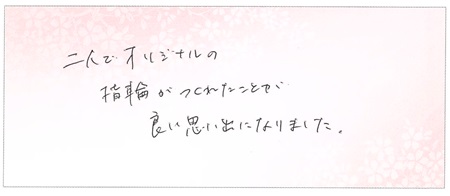 二人でオリジナルの
指輪がつくれたことが
良い思い出になりました。